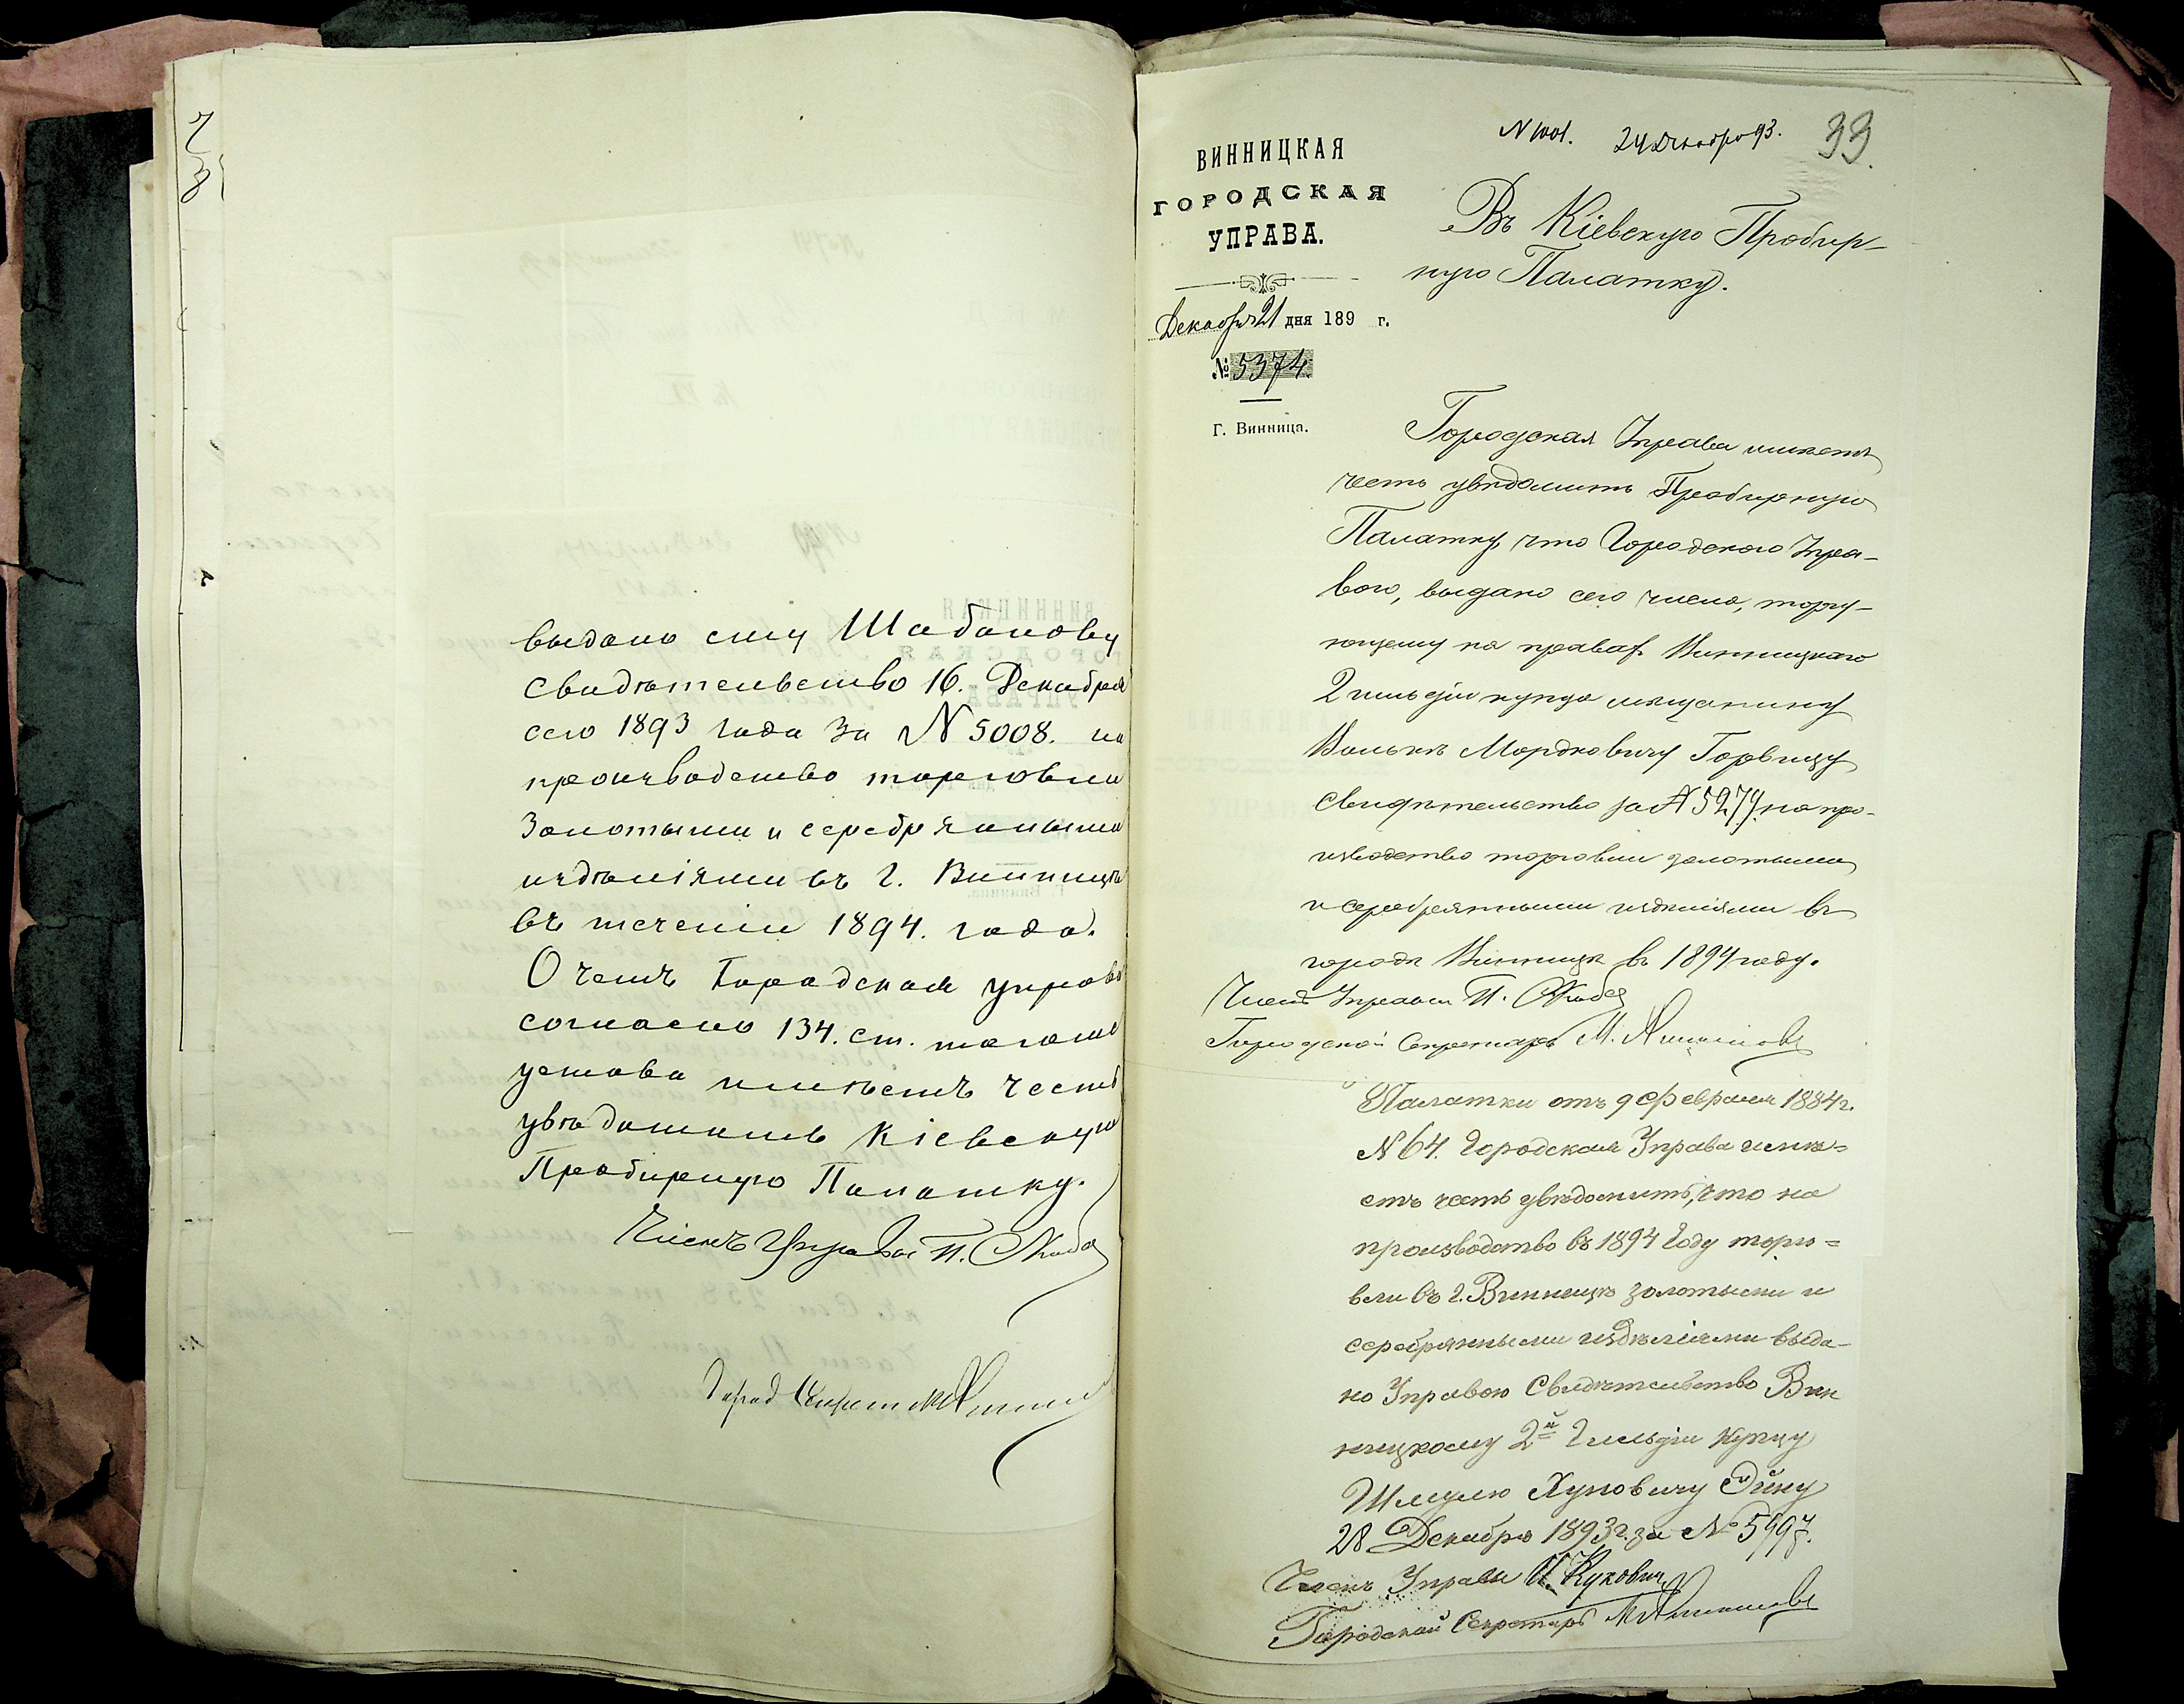 выдано ему Шабанову
свидѣтельство 16. Декабря
сего 1893 года за N 5008. на
производство торговли
золотыми и серебряными
издѣліями въ г. Винницѣ
въ теченіи 1894. года.
О чемъ Городская управа
согласно 134. ст. тогоже
устава имѣетъ честь
увѣдомить Кіевскую
Пробирную Палатку.
Членъ Управы П.
Город Секрет
N 1001. 24 Декабря 93. 33.
ВИННИЦКАЯ
ГОРОДСКАЯ
УПРАВА.
Декабря 21 дня 189 г.
№ 5374.
Г. Винница.
Въ Кіевскую Пробир-
ную Палатку.
Городская Управа имѣетъ
честь увѣдомить Пробирную
Палатку, что Городскою Упра-
вою, выдано сего числа, торгу-
ющему на правах Винницкаго
2 гильдіи купца мѣщанину
Волькѣ Мордковичу Горвицу
свидѣтельство за N 5274. на про-
изводство торговли золотыми
и серебрянными издѣліями въ
городѣ Винницѣ въ 1894 году.
Членъ Управы П.
Городской Секретарь М.
Палатки отъ 9 февраля 1884 г.
N 64. Городская Управа имѣ=
етъ честь увѣдомить, что на
производство въ 1894 году торго=
вли въ г. Винницѣ золотыми и
серебрянными издѣліями выда-
но Управою Свидѣтельство Вин
ницкому 2й Гильдіи купцу
Шмулю Хуновичу Эйну
28 Декабря 1893 г. за № 5997.
Членъ Управы
Городской Секретарь М